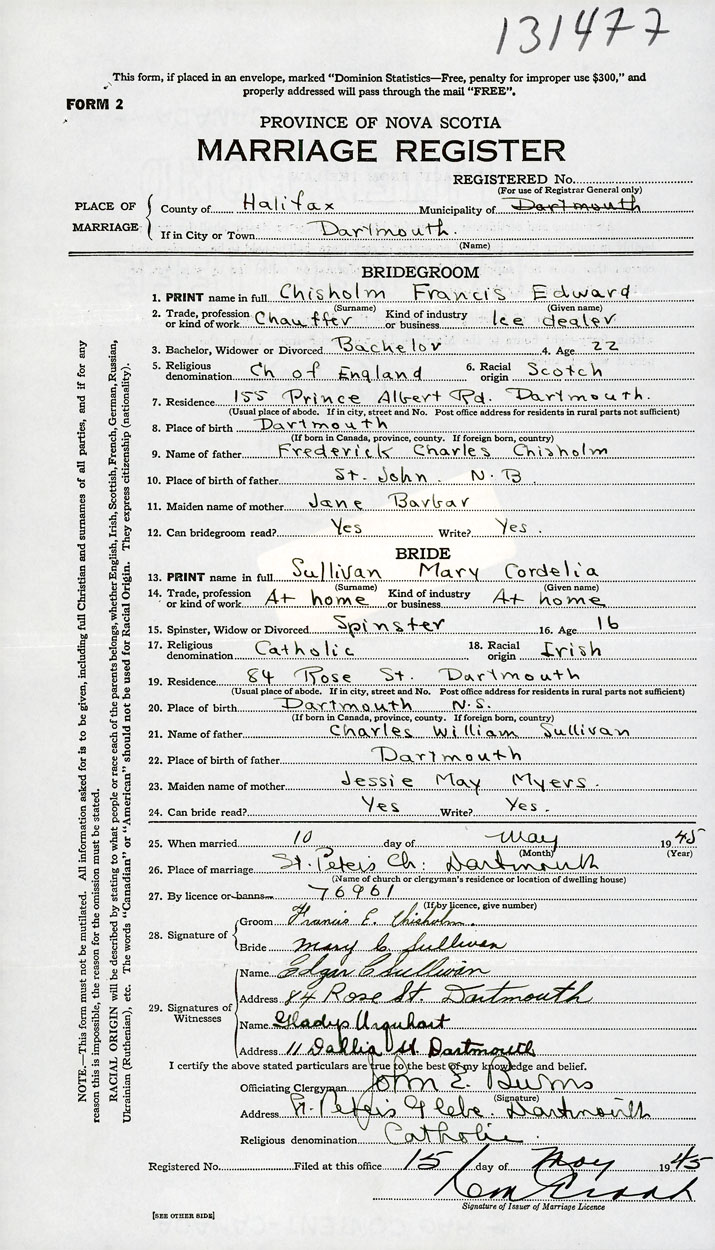 131477
This form, if placed in an envelope, marked "Dominion Statistics—Free, penalty for improper use $300," and
properly addressed will pass through the mail "FREE".
FORM 2
PROVINCE OF NOVA SCOTIA
MARRIAGE REGISTER
REGISTERED No.
(For use of Registrar General only)
PLACE OF MARRIAGE
County of Halifax Municipality of Dartmouth
If in City or Town Dartmouth.
(Name)
BRIDEGROOM
1. PRINT name in full Chisholm Francis Edward
(Surname) (Given name)
2. Trade, profession or kind of work Chauffer Kind of industry or business Ice dealer
3. Bachelor, Widower or Divorced Bachelor 4. Age 22
5. Religious denomination Ch of England 6. Racial origin Scotch
7. Residence 155 Prince Albert Rd. Dartmouth.
(Usual place of abode. If in city, street and No. Post office address for residents in rural parts not sufficient)
8. Place of birth Dartmouth
(If born in Canada, province, county. If foreign born, country)
9. Name of father Frederick Charles Chisholm
10. Place of birth of father St. John. N.B
11. Maiden name of mother Jane Barbar
12. Can bridegroom read? Yes Write? Yes.
BRIDE
13. PRINT name in full Sullivan Mary Cordelia
(Surname) (Given name)
14. Trade, profession or kind of work At home Kind of industry or business At home
15. Spinster, Widow or Divorced Spinster 16. Age 16
17. Religious denomination Catholic 18. Racial origin Irish
19. Residence 84 Rose St. Dartmouth
(Usual place of abode. If in city, street and No. Post office address for residents in rural parts not sufficient)
20. Place of birth Dartmouth N.S.
(If born in Canada, province, county. If foreign born, country)
21. Name of father Charles William Sullivan
22. Place of birth of father Dartmouth
23. Maiden name of mother Jessie May Myers.
24. Can bride read? Yes Write? Yes.
25. When married 10 day of May 1945
(Month) (Year)
26. Place of marriage St. Peter's Ch: Dartmouth
(Name of church or clergyman's residence or location of dwelling house)
27. By licence or banns 76961
(If by licence, give number)
28. Signature of
Groom Francis E. Chisholm.
Bride Mary C. Sullivan
29. Signatures of Witnesses
Name Edgar C Sullivan
Address 84 Rose St. Dartmouth
Name Gladys Urquhart
Address 11 Dallia St Dartmouth
I certify the above stated particulars are true to the best of my knowledge and belief.
Officiating Clergyman John E. Burns
(Signature)
Address St. Peter's Glebe. Dartmouth
Religious denomination Catholic.
Registered No. Filed at this office 15 day of May 1945
Signature of Issuer of Marriage Licence
[SEE OTHER SIDE]
NOTE.—This form must not be mutilated. All information asked for is to be given, including full Christian and surnames of all parties, and if for any
reason this is impossible, the reason for the omission must be stated.
RACIAL ORIGIN will be described by stating to what people or race each of the parents belongs, whether English, Irish, Scottish, French, German, Russian,
Ukrainian (Ruthenian), etc. The words "Canadian" or "American" should not be used for Racial Origin. They express citizenship (nationality).